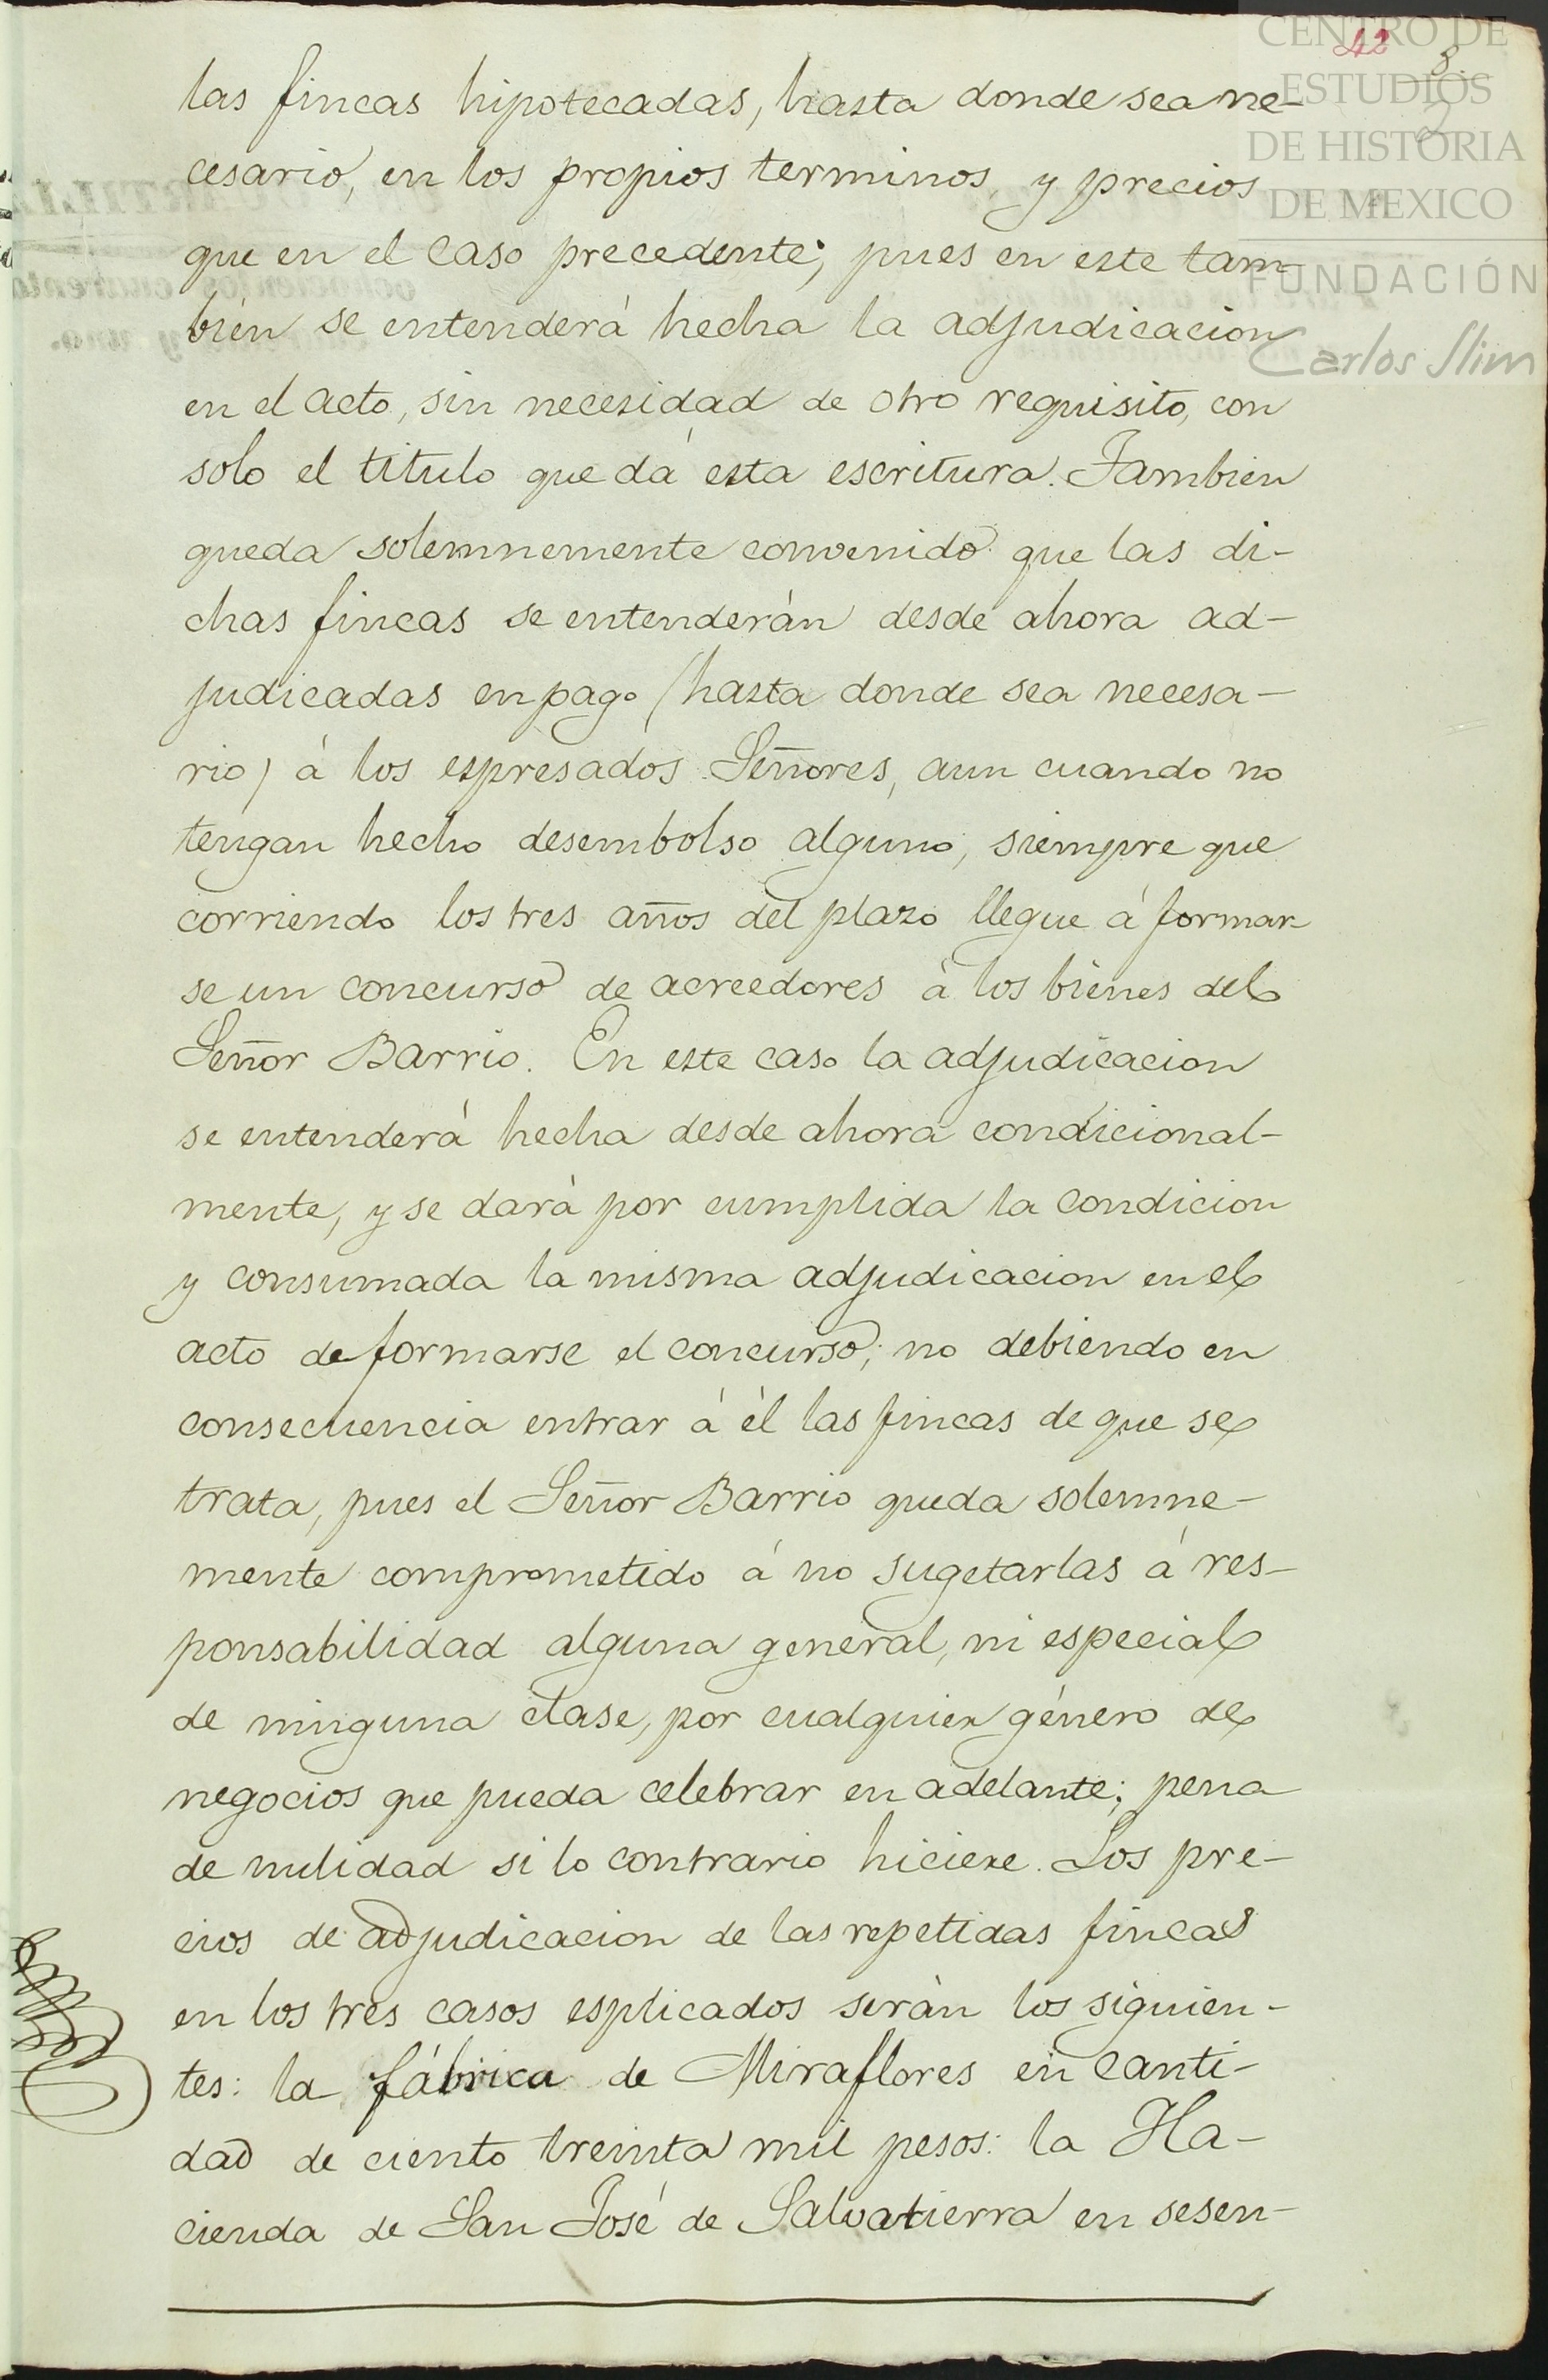 CENTRO DE
ESTUDIOS
DE HISTORIA
DE MEXICO
FUNDACIÓN
Carlos Slim
42
las fincas hipotecadas, hasta donde sea ne-
cesario, en los propios terminos, y precios
que en el caso precedente; pues en este tam-
bien se entenderá hecha la adjudicacion
en el acto, sin necesidad de otro requisito, con
solo el titulo que dá esta escritura. Tambien
queda solemnemente convenido que las di-
chas fincas se entenderán desde ahora ad-
judicadas en pago (hasta donde sea necesa-
rio) á los espresados Señores, aun cuando no
tengan hecho desembolso alguno, siempre que
corriendo los tres años del plazo llegue á formar-
se un concurso de acreedores á los bienes del
Señor Barrio. En este caso la adjudicacion
se entenderá hecha desde ahora condicional-
mente, y se dará por cumplida la condicion
y consumada la misma adjudicacion en el
acto de formarse el concurso; no debiendo en
consecuencia entrar á él las fincas de que se
trata, pues el Señor Barrio queda solemne-
mente comprometido á no sugetarlas á res-
ponsabilidad alguna general, ni especial
de ninguna clase, por cualquier género de
negocios que pueda celebrar en adelante; pena
de nulidad si lo contrario hiciere. Los pre-
cios de adjudicacion de las repetidas fincas
en los tres casos esplicados serán los siguien-
tes: la fábrica de Miraflores en canti-
dad de ciento treinta mil pesos: la Ha-
cienda de San José de Salvatierra en sesen-